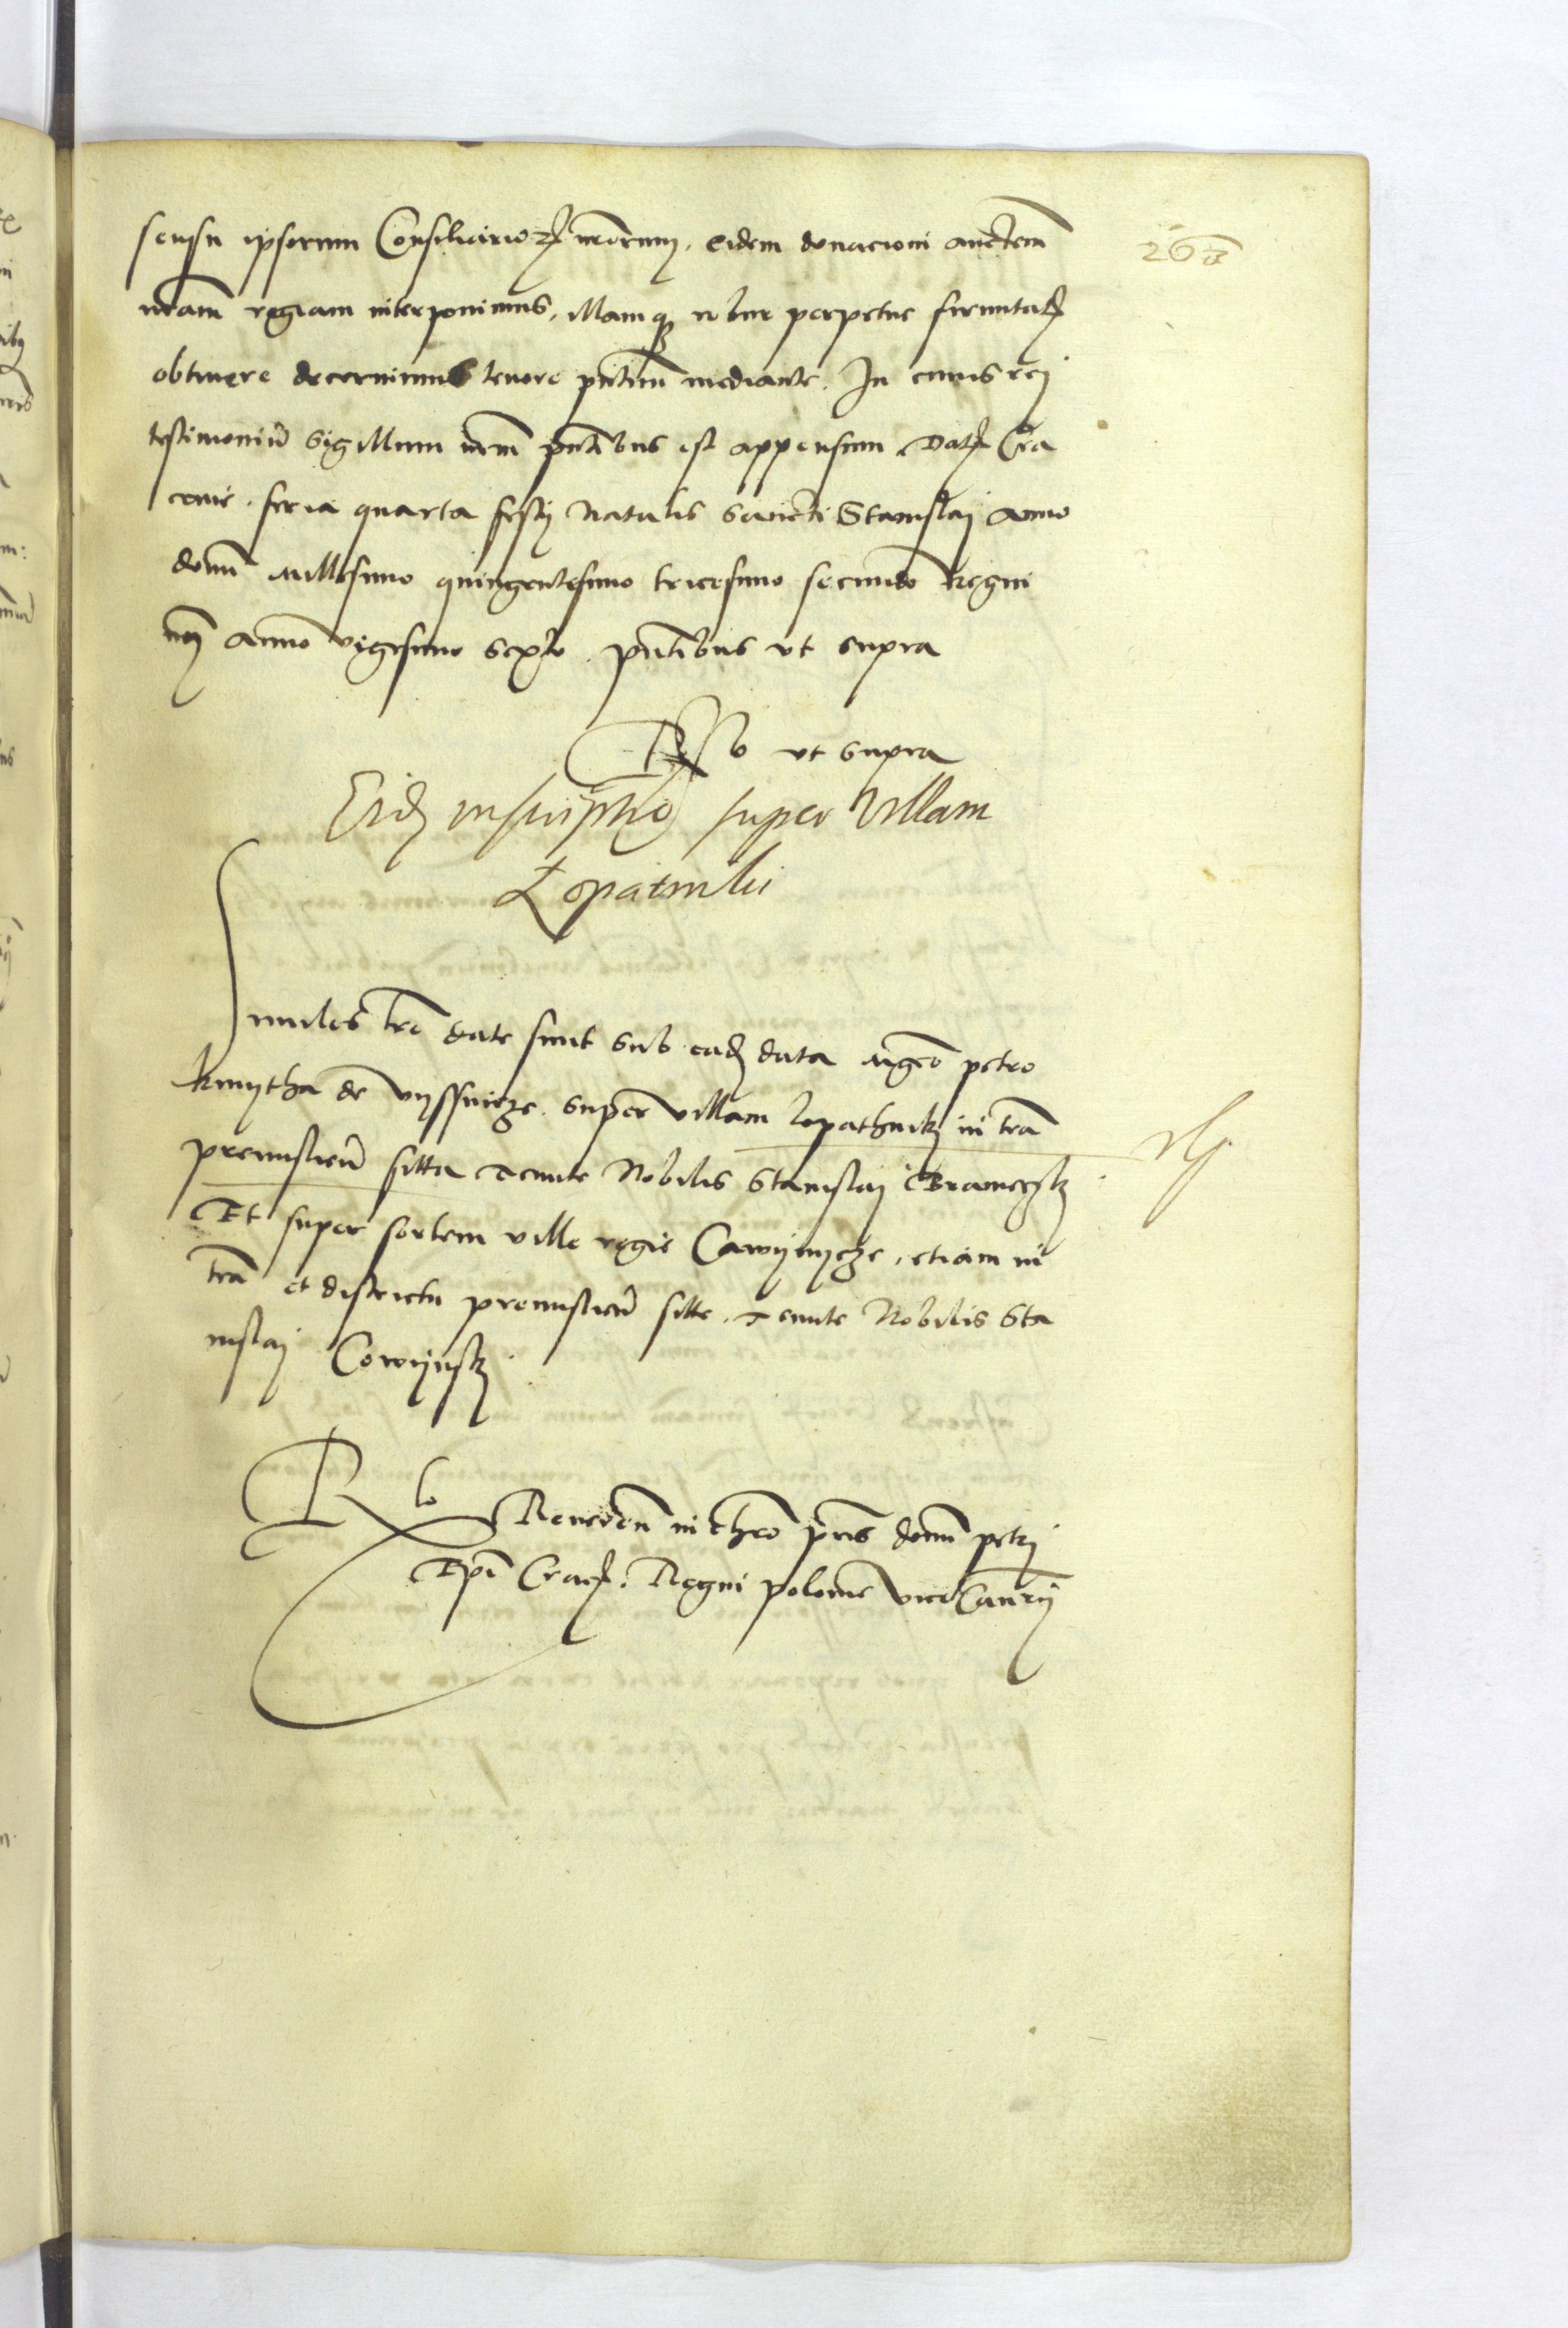 sensu ipsorum Consiliarioꝝ nr̃orum, eidem donacioni auctem̃
nr̃am regiam interponimus, illamqꝫ robur perpetue firmitatꝭ
obtinere decernimus tenore pn̄tium mediante. In cuius rei
testimoniũ Sigillum nr̃m pn̄tibus est appensum. Datꝭ Cra
couie. feria quarta festi Natalis Sancti Stanislaj Anno
domĩ Millesimo quingentesimo tricesimo secundo Regni
nrĩ Anno vigesimo sexto. pn̄tibus vt supra
Rlo vt supra
Eidẽ inscriptio super Villam
Lopatniki
Similes lr̃e date sunt sub eadẽ data Mgco petro
Kmytha de Vyssnicze. super villam lopathnikj in tr̃a
premisliẽn sitta Tenute Nobilis Stanislaj
Et super sortem ville regie etiam in
tr̃a et districtu premisliẽn sitte. Tenute Nobilis Sta
nislaj
Rlo Reuerẽn in chr̃o pr̃is domĩ petri
Epĩ Cracꝭ. Regni polonie vicecancrij